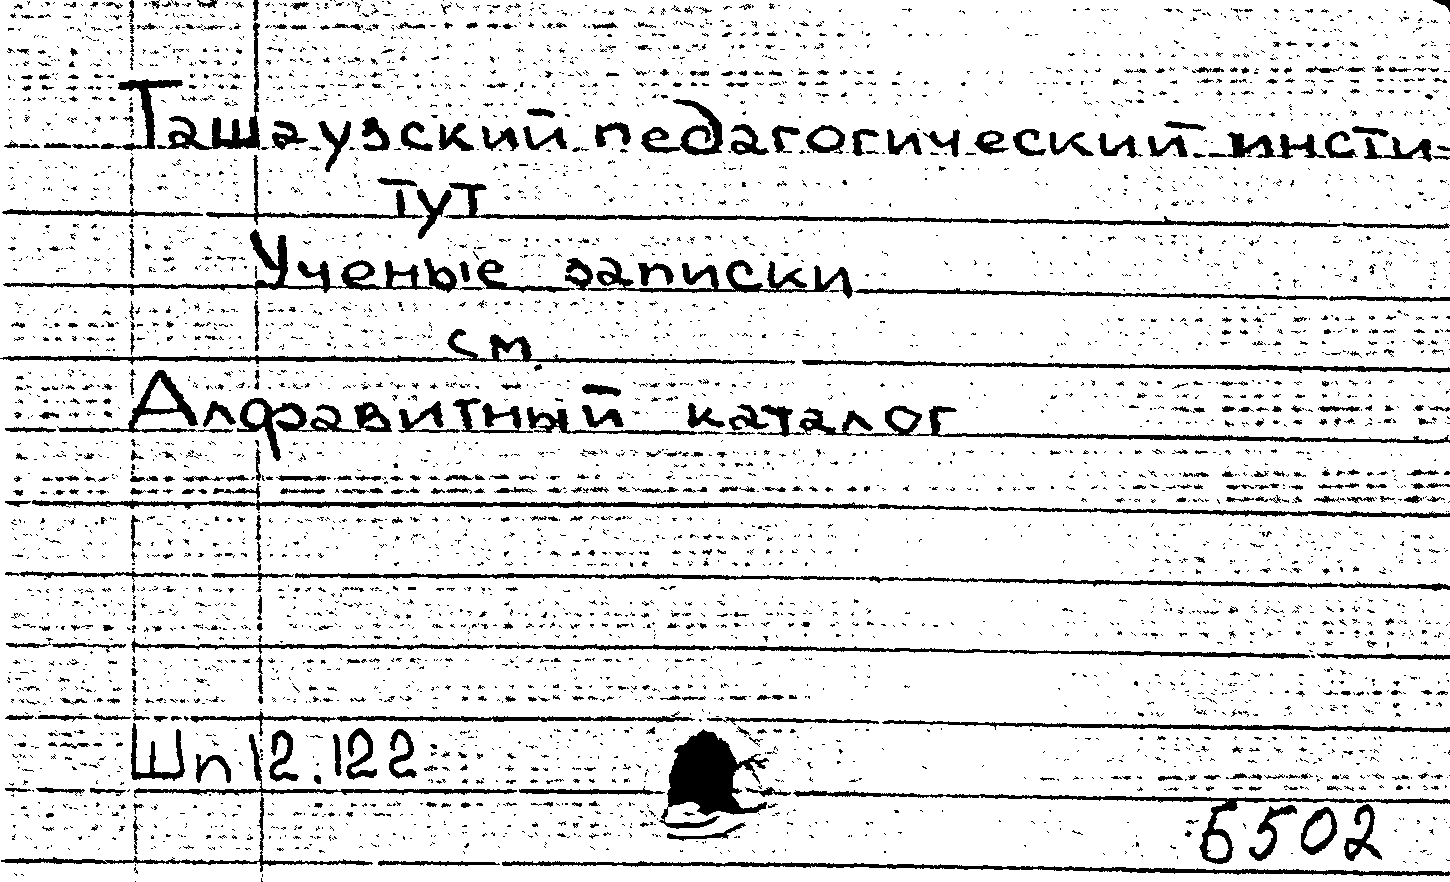 Ташаузский педагогический инсти-
тут
Ученые записки
см.
Алфавитный каталог
Шп 12.122
6502